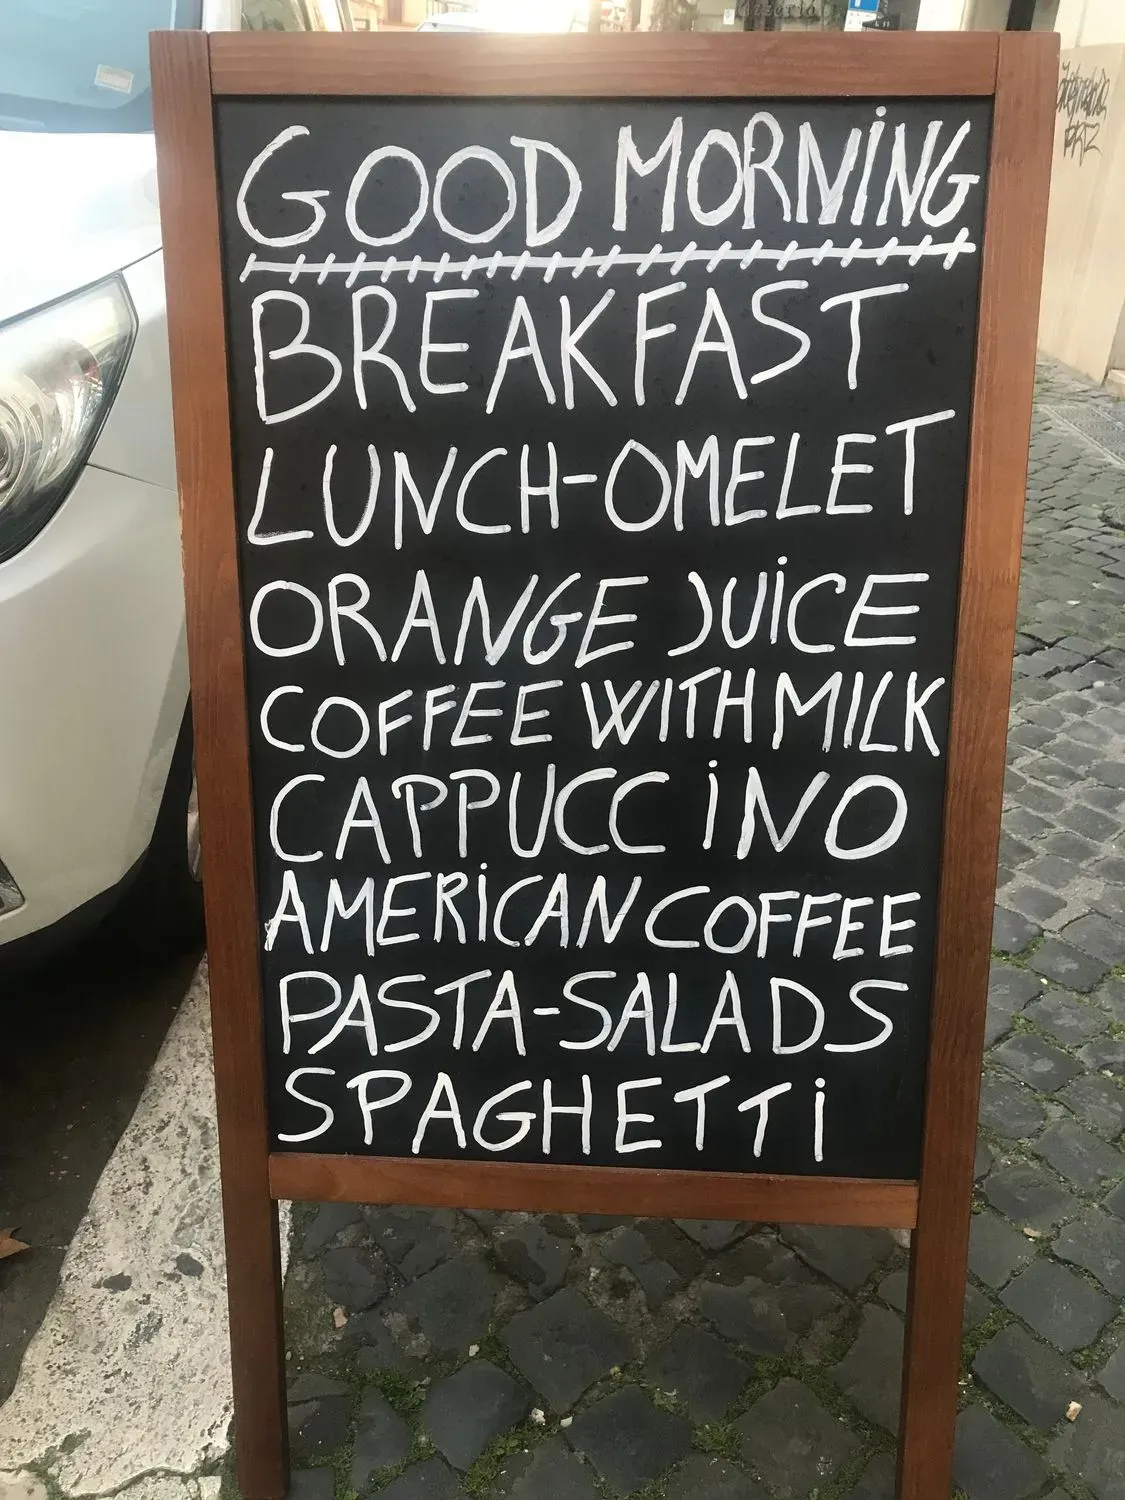 GOOD MORNING
BREAKFAST
LUNCH-OMELET
ORANGE JUICE
COFFEE WITH MILK
CAPPUCCINO
AMERICAN COFFEE
PASTA-SALADS
SPAGHETTI